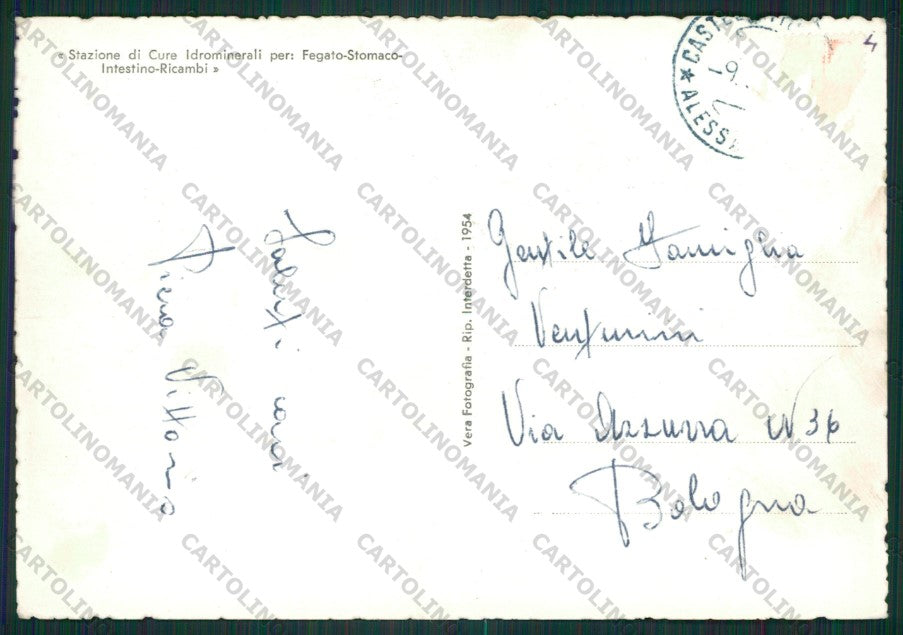 « Stazione di Cure Idrominerali per: Fegato-Stomaco-
Intestino-Ricambi »
4
★ CASTEL
ALESS
9
Vera Fotografia - Rip. Interdetta - 1954
Saluti cari
Piera Vittorio
Gentile Famiglia
Venturini
Via Azzurra N 36
Bologna
CARTOLINOMANIA